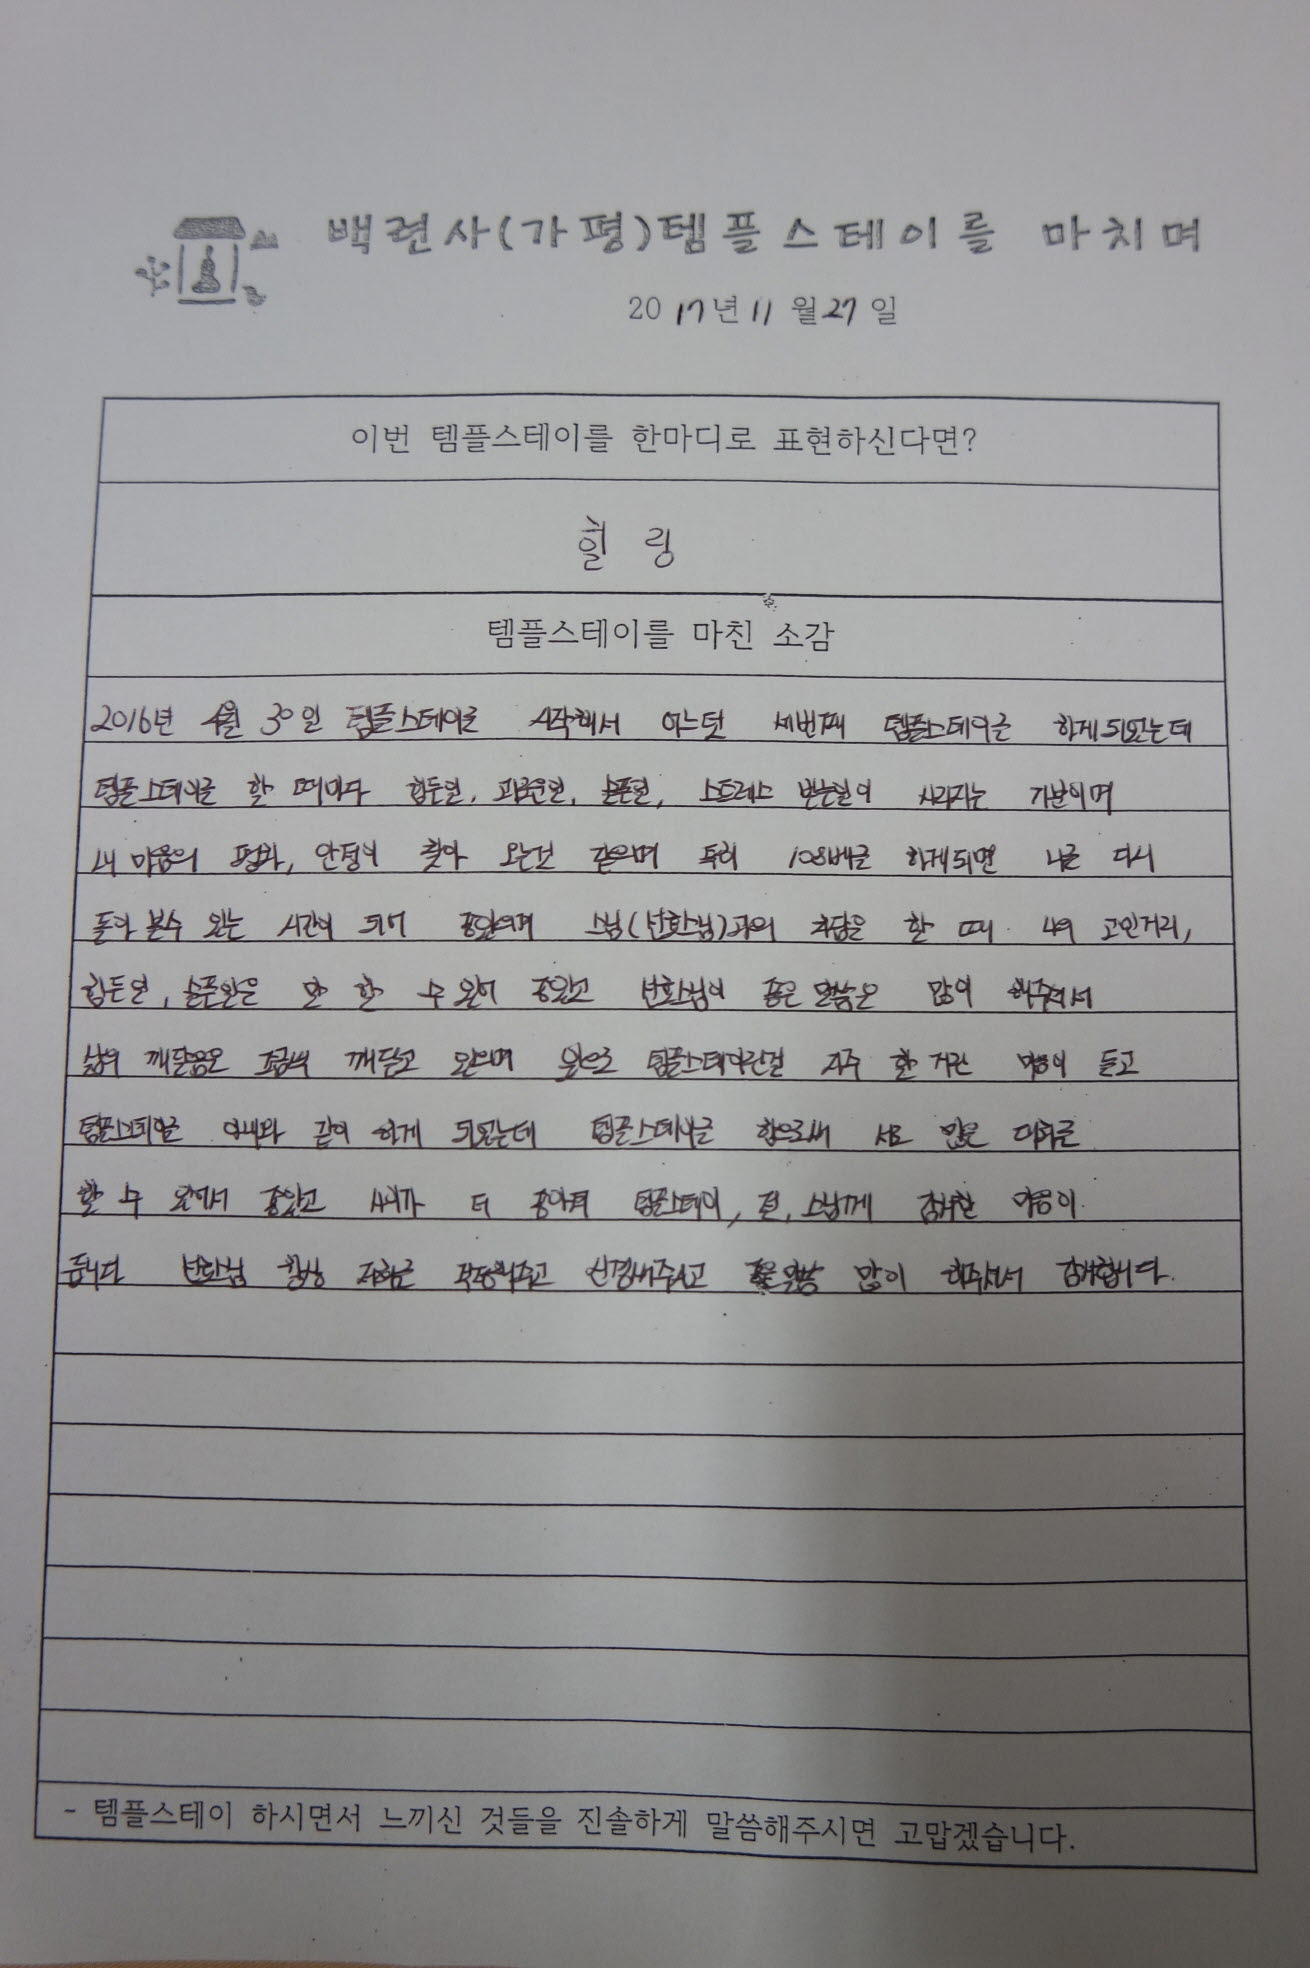 백련사(가평)템플스테이를 마치며
2017년 11월 27일
이번 템플스테이를 한마디로 표현하신다면?
힐링
템플스테이를 마친 소감
2016년 4월 30일 템플스테이를 시작해서 어느덧 세번째 템플스테이를 하게 되었는데
템플스테이를 할 때마다 힘든일, 괴로운일, 슬픈일, 스트레스 받는일이 사라지는 기분이며
내 마음의 평화, 안정이 찾아 오는건 같으며 특히 108배를 하게되면 나를 다시
돌아 볼수 있는 시간이 되어 좋았으며 스님(선화스님)과의 차담을 할 때 내 고민거리,
힘든일, 슬픈일을 말 할 수 있어 좋았고 선화스님이 좋은 말씀을 많이 해주셔서
삶의 깨달음을 조금씩 깨닫고 있으며 앞으로 템플스테이란걸 자주 할 거란 마음이 들고
템플스테이를 아내와 같이 하게 되었는데 템플스테이를 함으로써 서로 많은 대화를
할 수 있어서 좋았고 사이가 더 좋아져 템플스테이, 절, 스님께 감사한 마음이
듭니다 선화스님 항상 저희를 걱정해주고 신경써주시고 좋은말씀 많이 해주셔서 감사합니다.
- 템플스테이 하시면서 느끼신 것들을 진솔하게 말씀해주시면 고맙겠습니다.